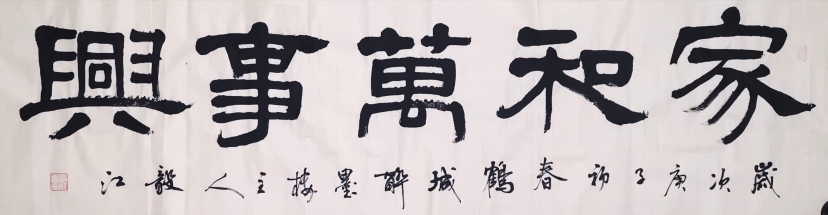 家和萬事興
歲次庚子初春鶴城醉墨樓主人毅江